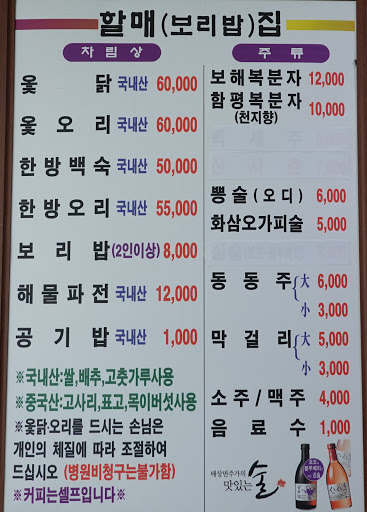 할매(보리밥)집
차림상
옻 닭 국내산 60,000
옻 오 리 국내산 60,000
한 방 백 숙 국내산 50,000
한 방 오 리 국내산 55,000
보 리 밥 (2인이상) 8,000
해 물 파 전 국내산 12,000
공 기 밥 국내산 1,000
※국내산:쌀,배추,고춧가루사용
※중국산:고사리,표고,목이버섯사용
※옻닭:오리를 드시는 손님은
개인의 체질에 따라 조절하여
드십시오 (병원비청구는불가함)
※커피는셀프입니다※
주 류
보해복분자 12,000
함평복분자 10,000
(천지향)
뽕술(오디) 6,000
화삼오가피술 5,000
동 동 주 大 6,000
小 3,000
막 걸 리 大 5,000
小 3,000
소주/맥주 4,000
음 료 수 1,000
배상면주가의
맛있는 술